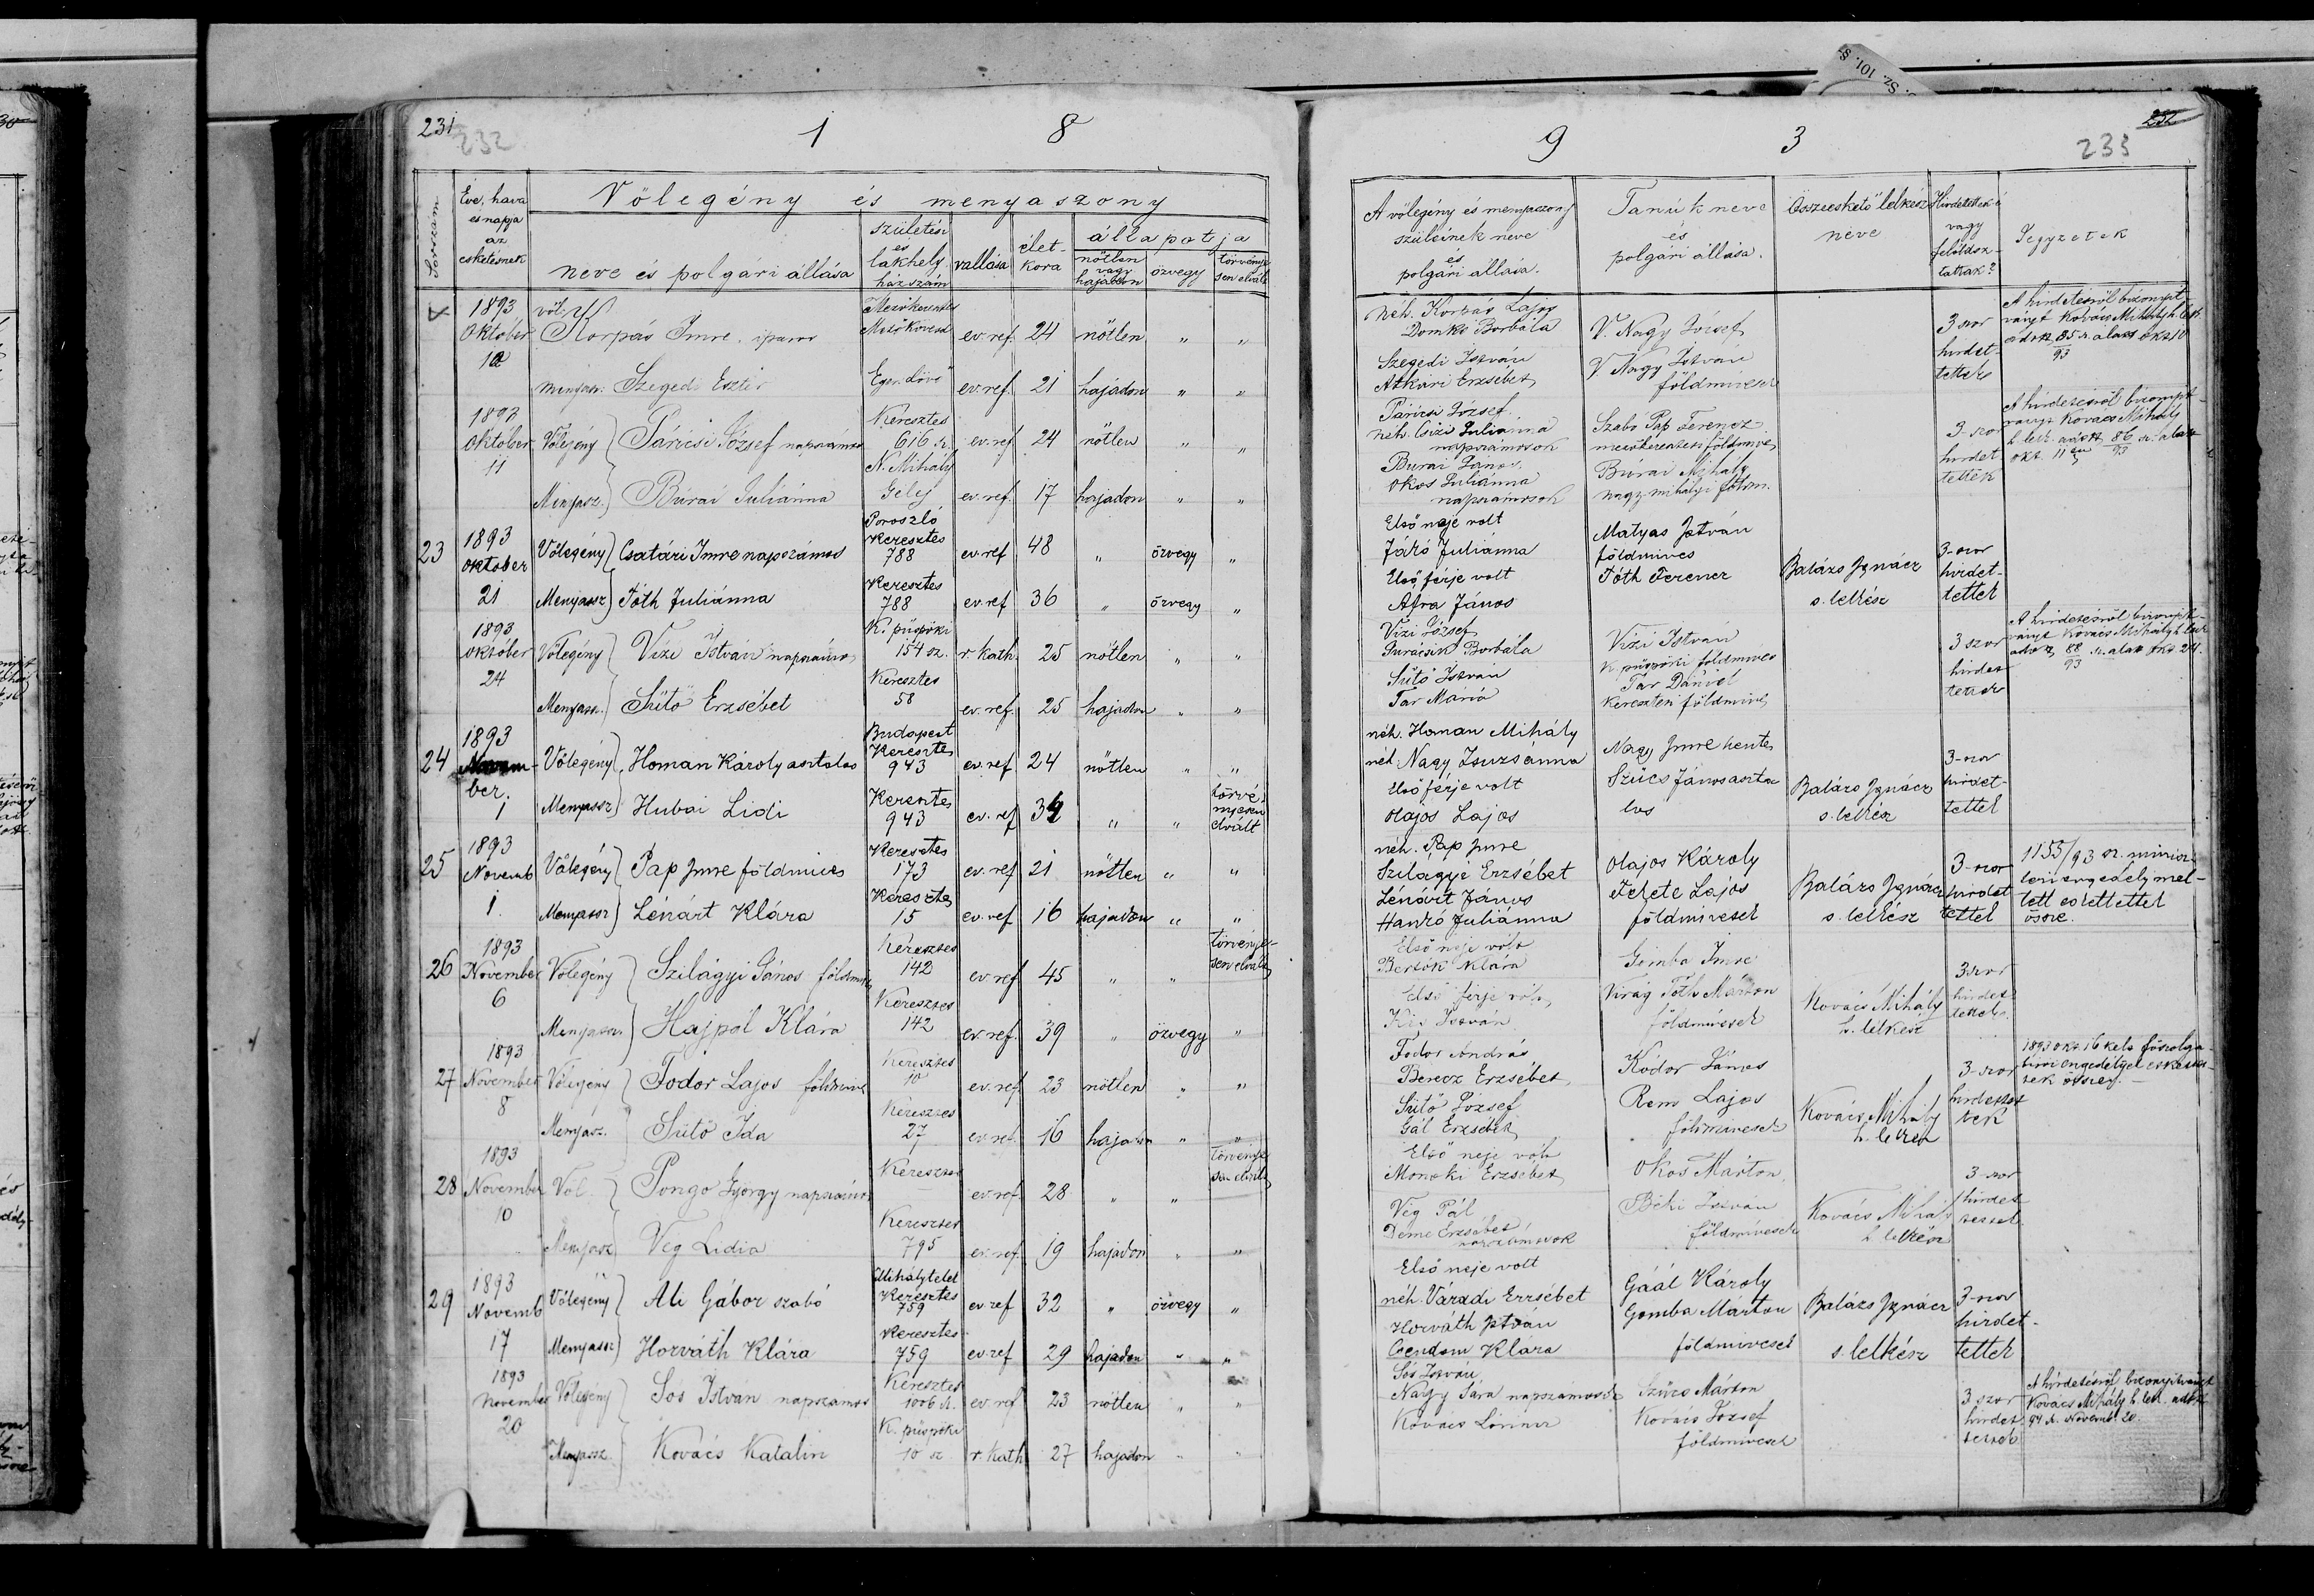 231 232
1 8
Sorszám
Éve, hava és napja az esketésnek
Völegény és menyaszony
neve és polgári állása
születési és lakhely házszám
vallása
élet-kora
állapotja
nőtlen vagy hajadon
özvegy
törvényesen elvált
1893 Október völ. Korpás Imre iparos Mezőkeresztes Mezőkövesd ev. ref. 24 nötlen " "
Menyasz. Szegedi Eszter Eger-Lövö ev. ref. 21 hajadon " "
1893 Október 11 Völegény Páricsi József napszámos Keresztes 616 sz. ev. ref 24 nötlen " "
Menyasz. Burai Juliánna N. Mihály Gelej ev. ref. 17 hajadon " "
23 1893 Oktober 21 Völegény Csatári Imre napszámos Poroszló Keresztes 788 ev. ref 48 " özvegy "
Menyassz Tóth Juliánna Keresztes 788 ev. ref 36 " özvegy "
1893 Október 24 Völegény Vizi István napszámos K. püspöki 154 sz. r. kath. 25 nötlen " "
Menyassz. Sütö Erzsébet Keresztes 58 ev. ref. 25 hajadon " "
24 1893 November. 1 Völegény Homan Károly asztalos Budapest Keresztes 943 ev. ref 24 nötlen " "
Menyassz Hubai Lidi Keresztes 943 ev. ref 34 " " törvényesen elvált
25 1893 Novemb 1. Völegény Pap Imre földmives Keresztes 173 ev. ref 21 nötlen " "
Menyassz Lénárt Klára Keresztes 15 ev. ref 16 hajadon " "
26 1893 November 6 Völegény Szilágyi János földmives Keresztes 142 ev ref 45 " " törvényesen elvált
Menyassz. Hajpál Klára Keresztes 142 ev. ref. 39 " özvegy "
27 1893 November 8 Völegény Fodor Lajos földmives Keresztes 10 ev. ref 23 nötlen " "
Menyasz. Sütö Ida Keresztes 27 ev. ref. 16 hajadon " "
28 1893 November 10 Völ. Pongo György napszámos Keresztes ev. ref. 28 " " törvényesen elvált
Menyasz Veg Lidia Keresztes 795 ev. ref 19 hajadon " "
29 1893 Novemb 17 Völegény Ali Gábor szabó Mihálytelek Keresztes 759 ev. ref 32 " özvegy "
Menyassz Horváth Klára Keresztes 759 ev. ref 29 hajadon " "
1893 November 20 Völegény Sós Istvan napszámos Keresztes 1006 sz. ev. ref 23 nötlen " "
Menyassz. Kovács Katalin K. püspöki 10 sz r. kath 27 hajadon " "
9 3
252 233
A völegény és menyaszony szüleinek neve és polgári állása.
Tanúk neve és polgári állása.
Összeesketö lelkész neve
Hirdettettek-é vagy felóldoztattak?
Jegyzetek
néh. Korpás Lajos
Domkó Borbála
V. Nagy József
3 szor hirdettettek
A hirdetésröl bizonyitványt Kovács Mihály h. lelk adott 85/93 sz. alatt okt 10
Szegedi István
Atkári Erzsébet
V. Nagy István
földmivesek
Páricsi József
néh. Csizi Julianna
napszámosok
Szabó Pap Ferencz
mezőkeresztesi földmives
3-szor hirdettettek
A hirdetésröl bizonyitványt Kovács Mihály h. lelk. adott 86/93 sz. alatt okt. 11én
Burai János
Okos Juliánna
napszámosok
Burai Mihály
nagy mihályi földm.
Elsö neje volt
Jáhó Juliánna
Elsö férje volt
Afra János
Matyas István
földmives
Tóth Ferencz
Balázs Ignácz
s. lelkész
3-szor hirdettettek
Vizi József
Suracsik Borbála
Sütö István
Tar Mária
Vizi István
K. püspöki földmives
Tar Dániel
Keresztesi földmives
3 szor hirdettettek
A hirdetésröl bizonyitványt Kovács Mihály h. lelk adott 88/93 sz. alatt okt 24.
néh. Homan Mihály
néh. Nagy Zsuzsánna
Elsö férje volt
Olajos Lajos
Nagy Imre hentes
Szücs János asztalos
Balázs Ignácz
s. lelkész
3-szor hirdettettek
néh. Pap Imre
Szilágyi Erzsébet
Lénárt János
Hankó Juliánna
Olajos Károly
Fekete Lajos
földmivesek
Balázs Ignácz
s. lelkész
3-szor hirdettettek
1155/93 sz. miniszteri engedély mellett eskettettek össze.
Elsö neje volt
Bertók Klára
Elsö férje volt
Kis István
Gomba Imre
Virág Tóth Márton
földmivesek
Kovács Mihály
h. lelkész
3szor hirdettettek.
Fodor András
Berecz Erzsébet
Sütö József
Gál Erzsébet
Kódor János
Rem Lajos
földmivesek
Kovács Mihály
h. lelkész
3-szor hirdettettek
1893 okt. 16 kelt föszolgabirói engedélylyel eskettettek össze.
Elsö neje volt
Monoki Erzsébet
Veg Pál
Deme Erzsébet
napszámosok
Okos Márton
Béki Istvan
földmivesek
Kovács Mihály
h. lelkész
3-szor hirdettettek
Elsö neje volt
néh. Váradi Erzsébet
Horváth István
Csendom Klára
Gáál Károly
Gomba Márton
földmivesek
Balázs Ignácz
s. lelkész
3-szor hirdettettek
Sós István
Nagy Sára napszámosok
Kovács Lörincz
Szücs Márton
Kovács József
földmivesek
3 szor hirdettettek
A hirdetésröl bizonyitványt Kovács Mihály h. lelk. adott 94 sz. Novemb. 20.
Sz. 101. 8